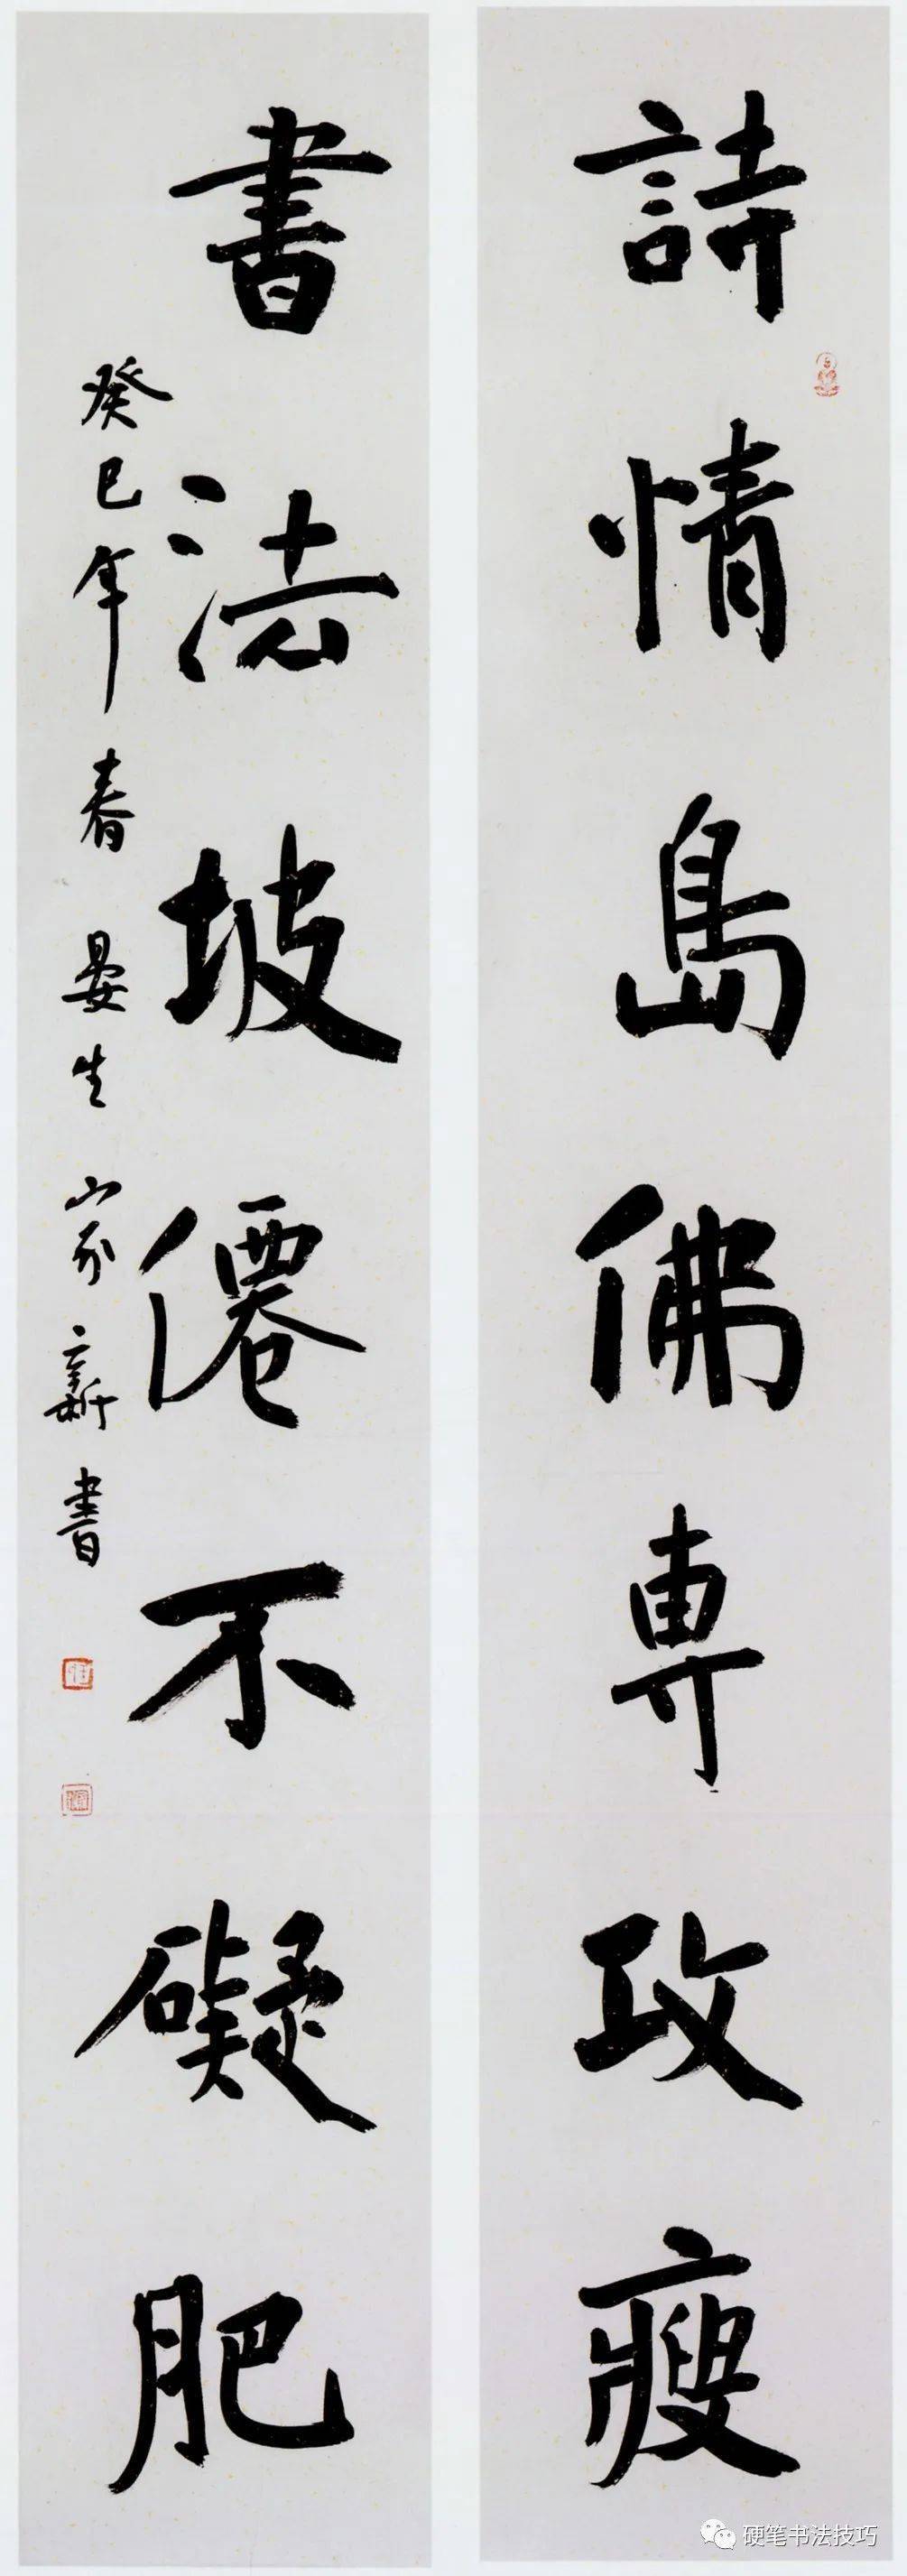 詩情島佛專攻瘦
書法坡僊不礙肥
癸巳年春晏生家新書
硬笔书法技巧